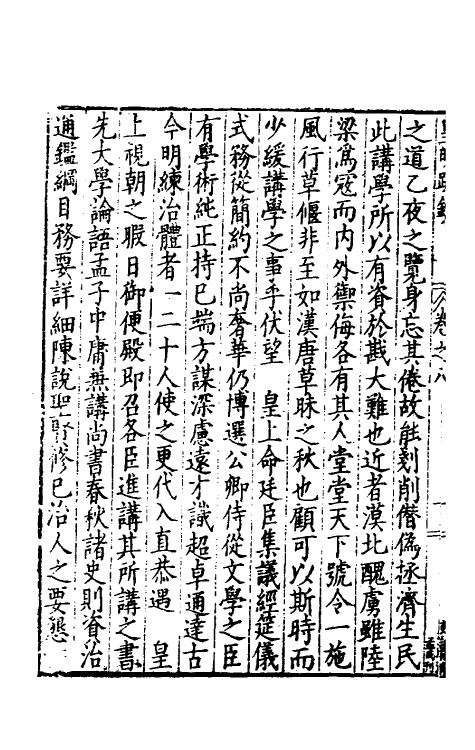 之道乙夜之覽身忘其倦故能剗削僭僞拯濟生民
此講學所以有資於戡大難也近者漠北醜虜雖陸
梁爲寇而內外禦侮各有其人堂堂天下號令一施
風行草偃非至如漢唐草昧之秋也顧可以斯時而
少緩講學之事乎伏望　皇上命廷臣集議經筵儀
式務從簡約不尚奢華仍博選公卿侍從文學之臣
有學術純正持已端方謀深慮遠才識超卓通達古
今明練治體者一二十人使之更代入直恭遇　皇
上視朝之暇日御便殿即召各臣進講其所講之書
先大學論語孟子中庸兼講尚書春秋諸史則資治
通鑑綱目務要詳細陳說聖賢修已治人之要懇